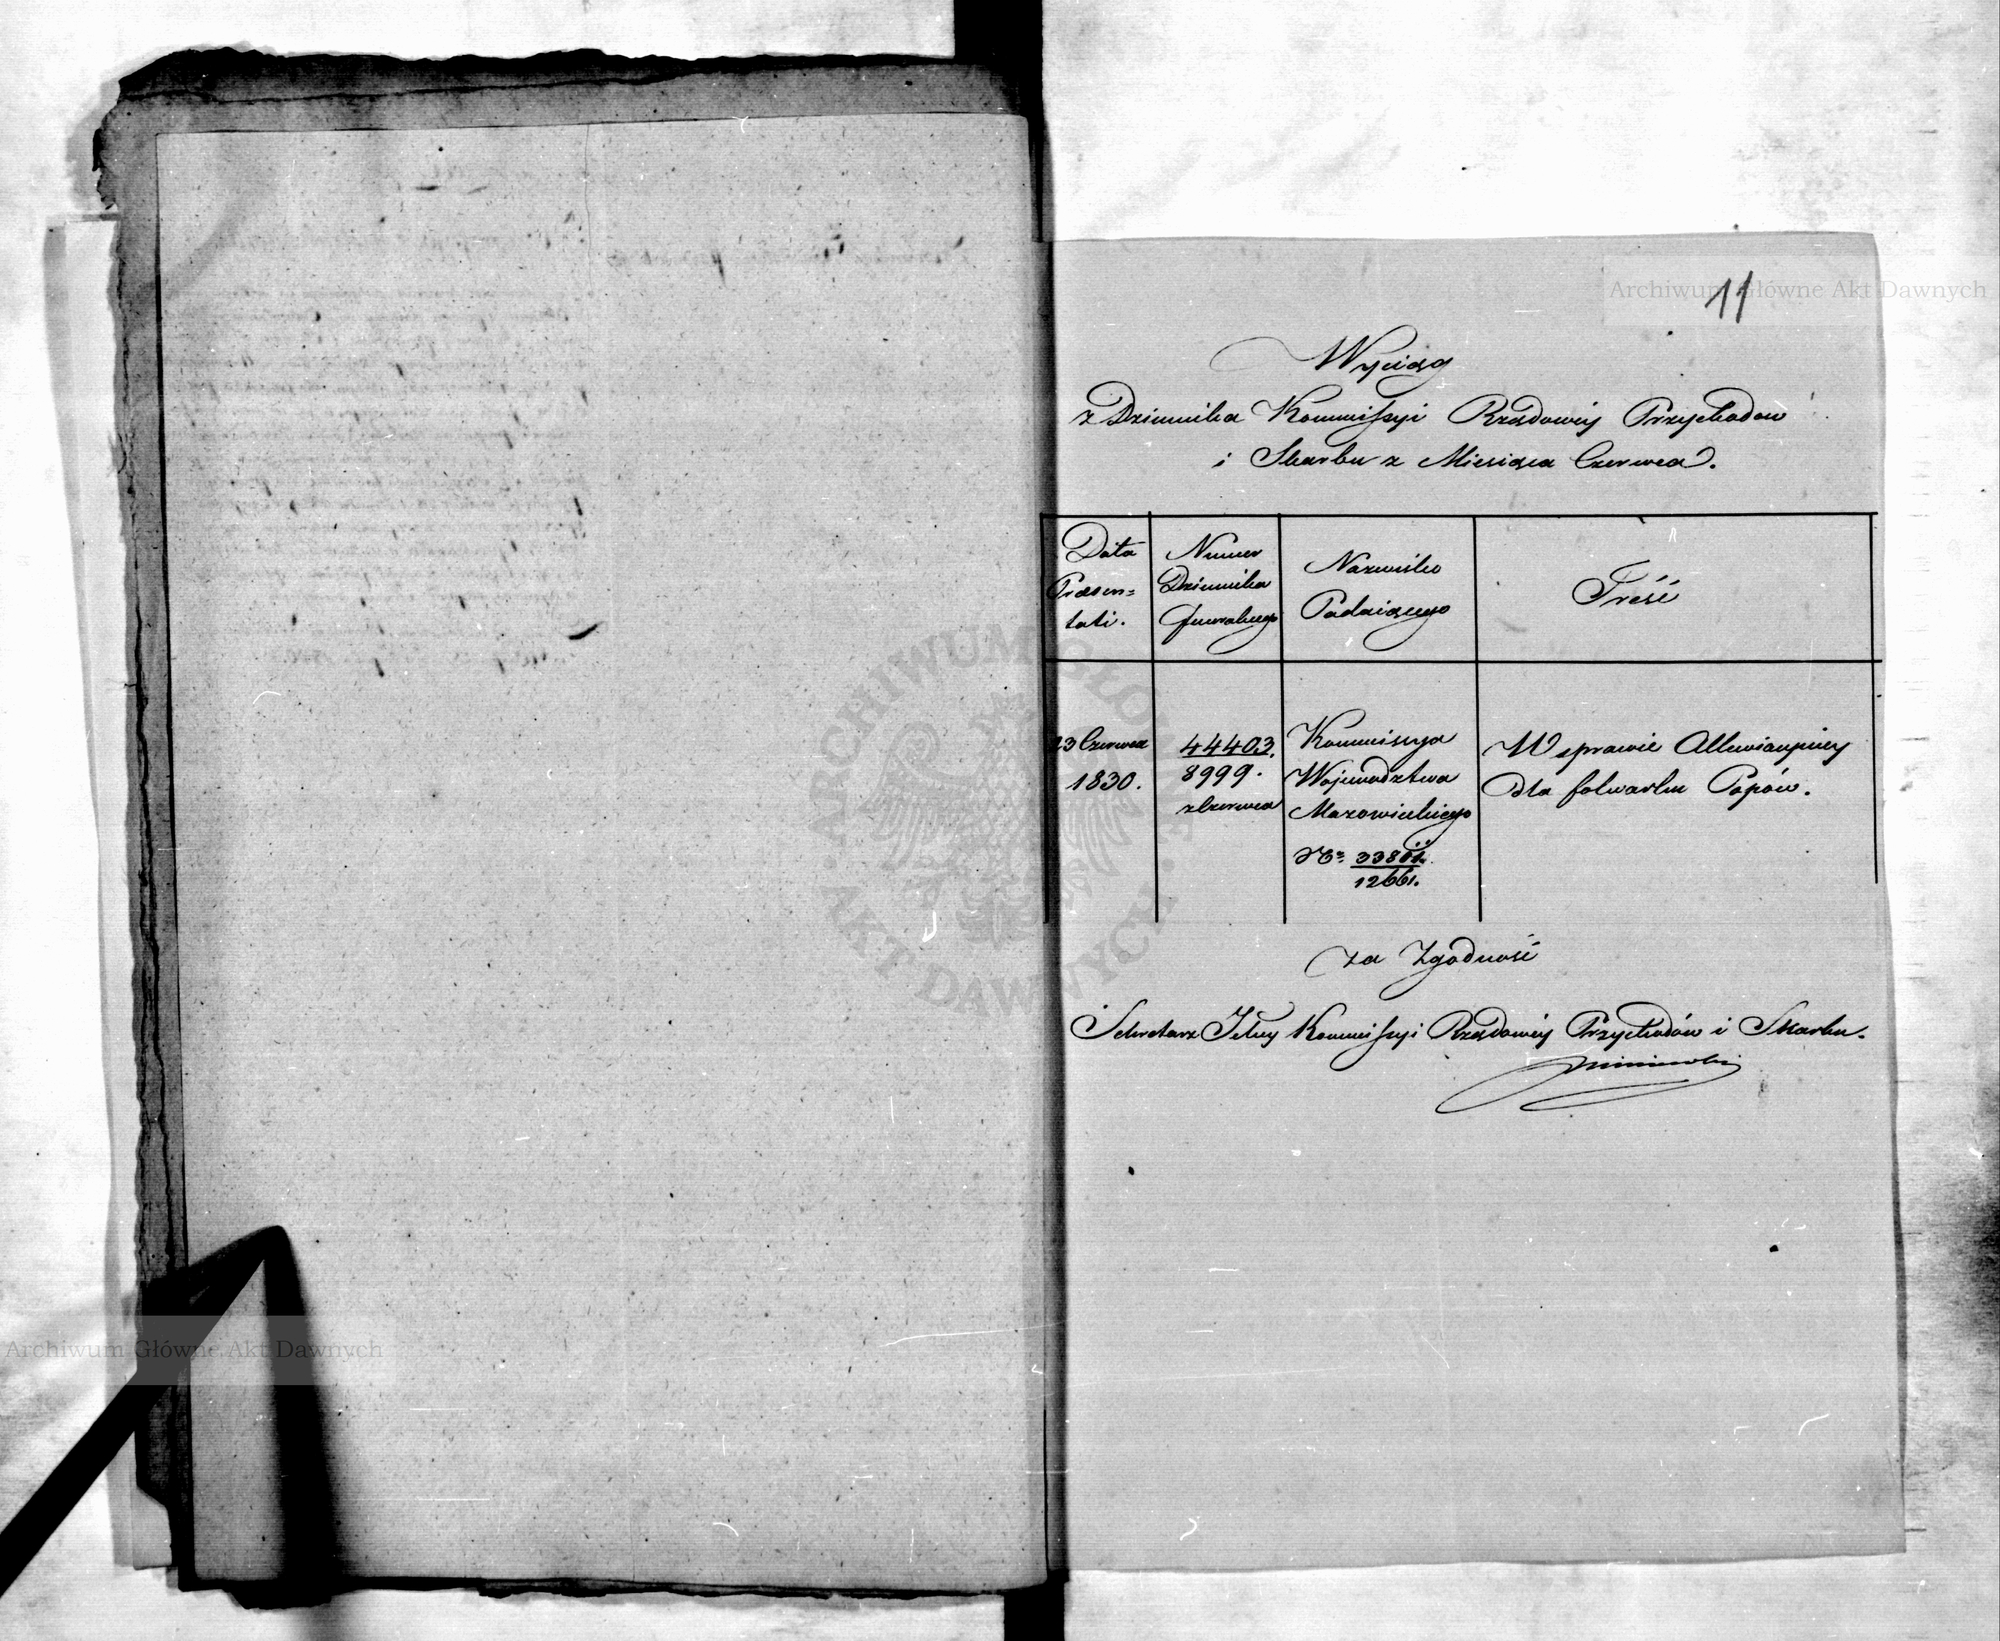 11
Archiwum Główne Akt Dawnych
Wyciąg
z Dziennika Kommissyi Rządowéy Przychodów
i Skarbu z Miesiąca Czerwca.
Data
Præsen=
tati.
Numer
Dziennika
Generalnego
Nazwisko
Podaiącego
Treść
23 Czerwca
1830.
44403.
8999.
z Czerwca
Kommissya
Województwa
Mazowieckiego
12661.
W sprawie
dla folwarku Popów.
Za Zgodność
Sekretarz Jlny Kommissyi Rządowéy Przychodów i Skarbu.
ARCHIWUM GŁÓWNE AKT DAWNYCH
Archiwum Główne Akt Dawnych